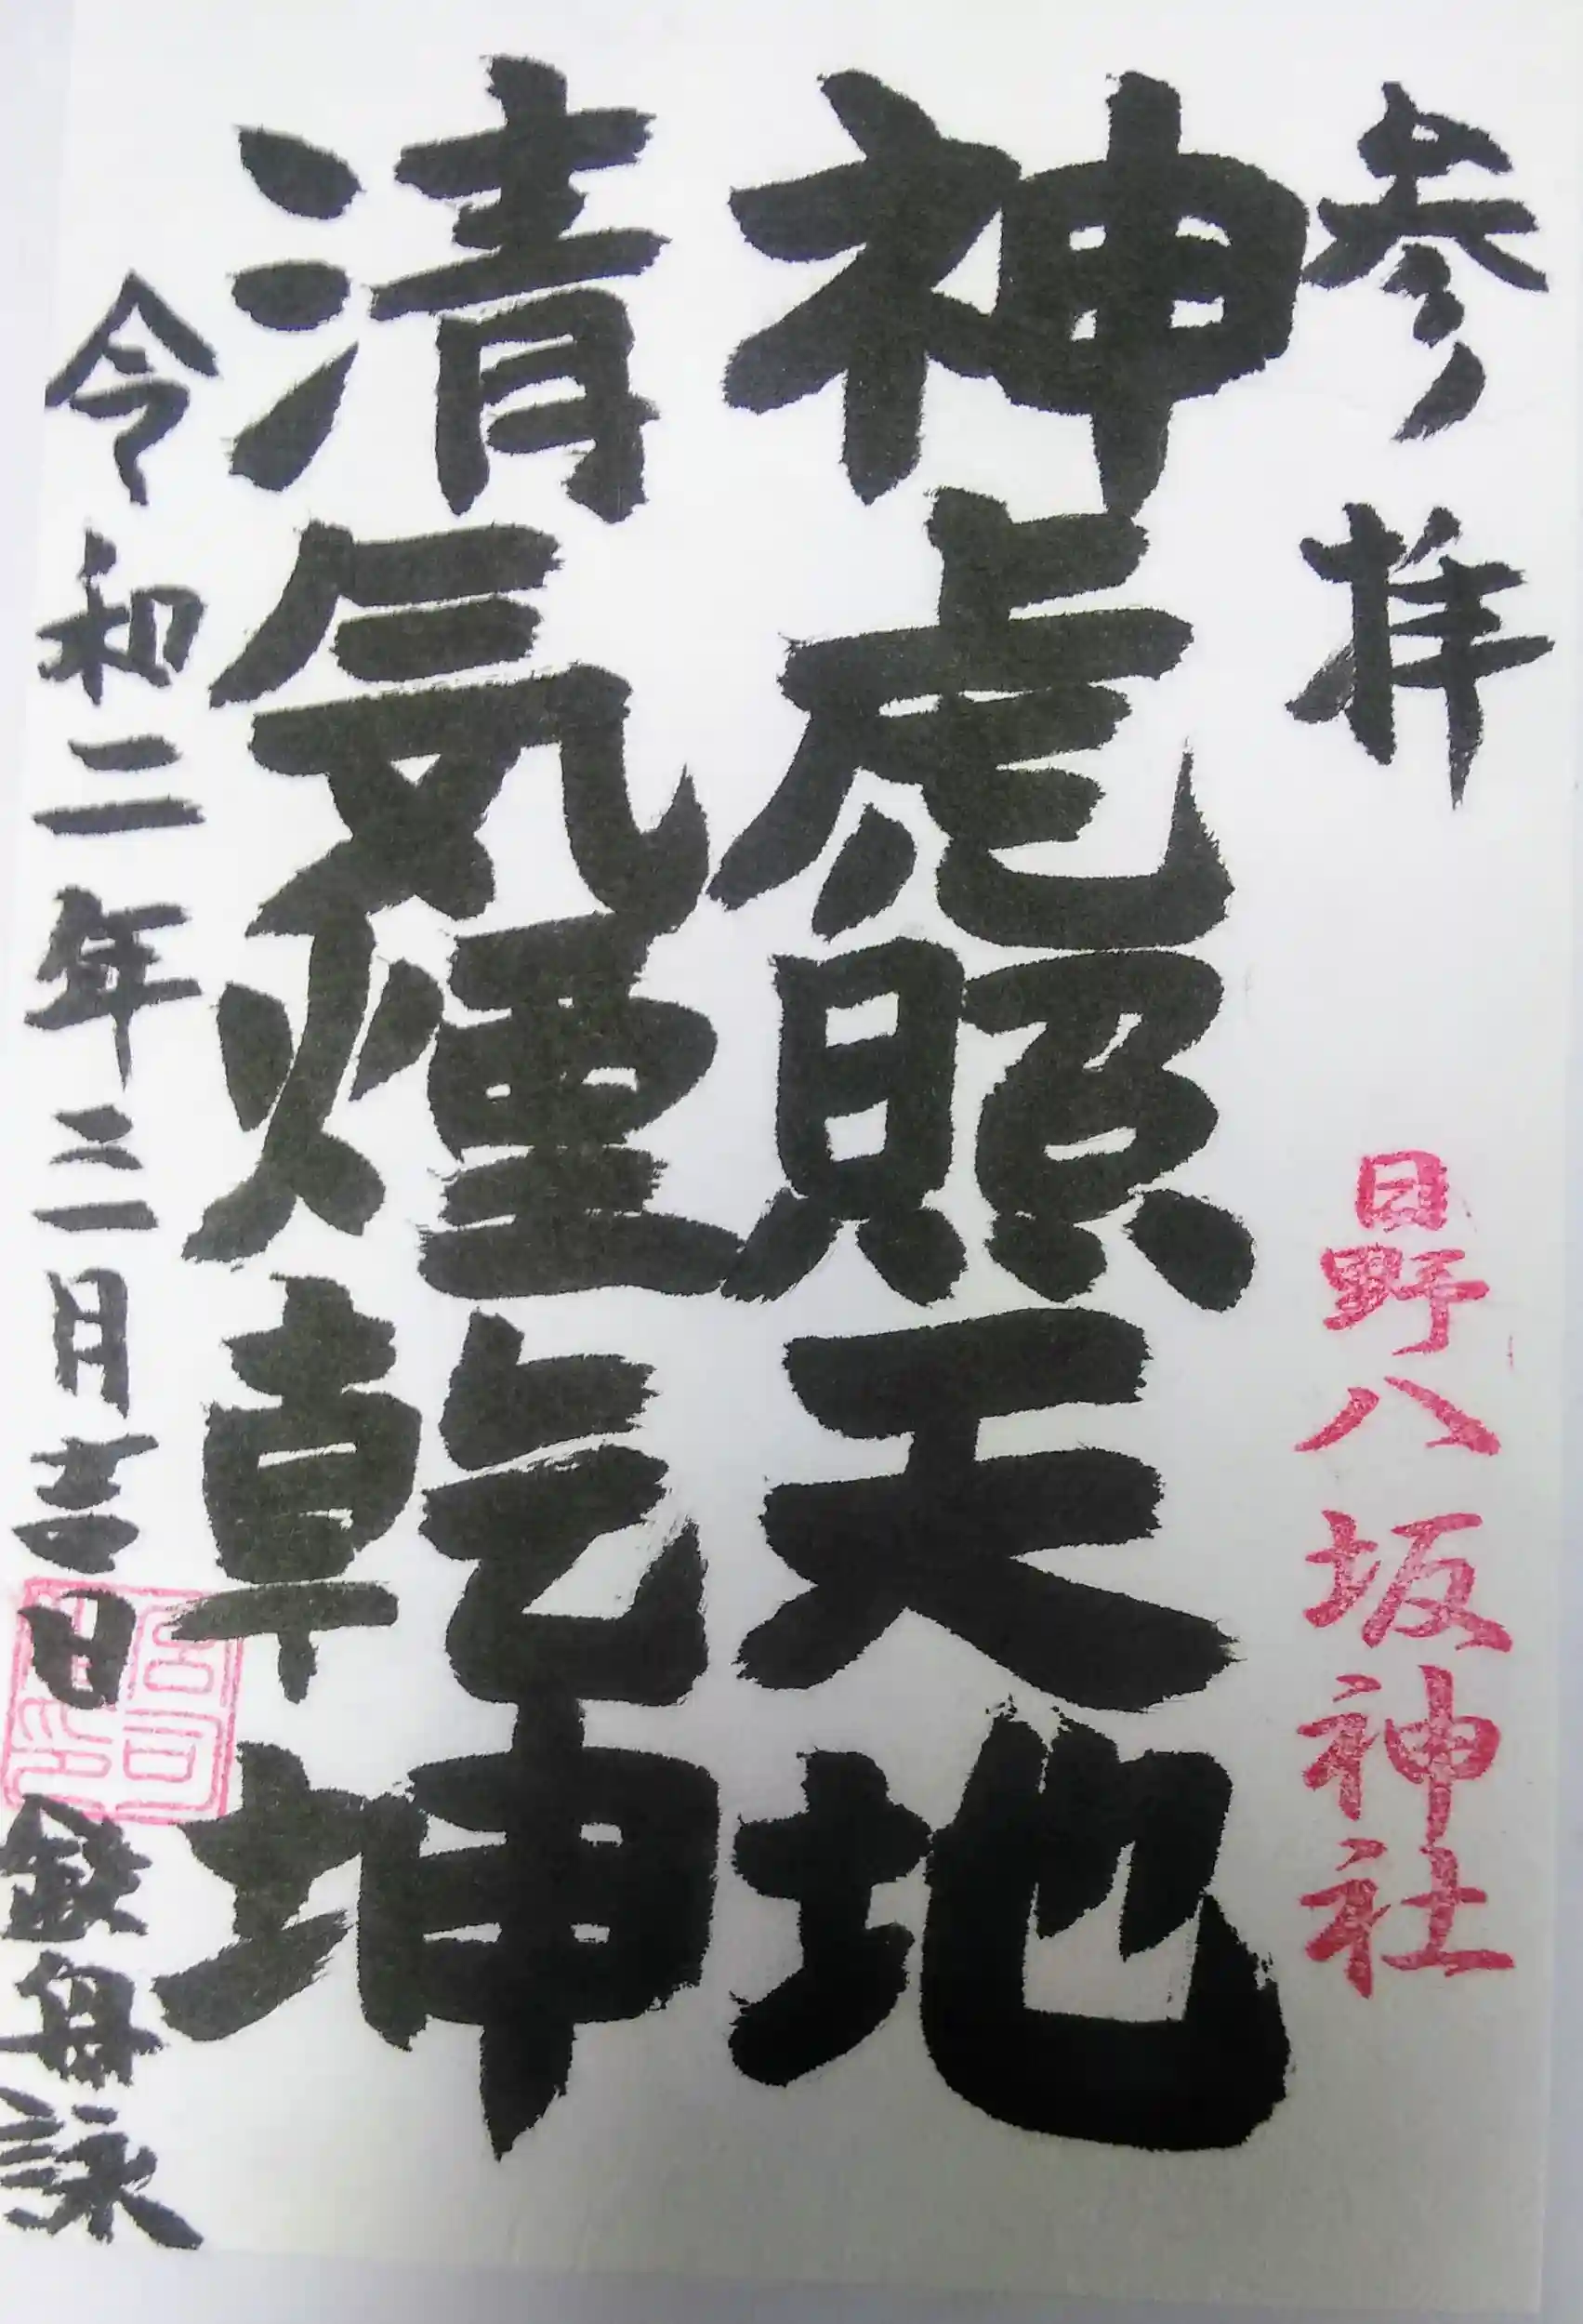 参拝
日野八坂神社
神虎照天地
清気煙乾坤
令和二年三月三日
鉄舟詠